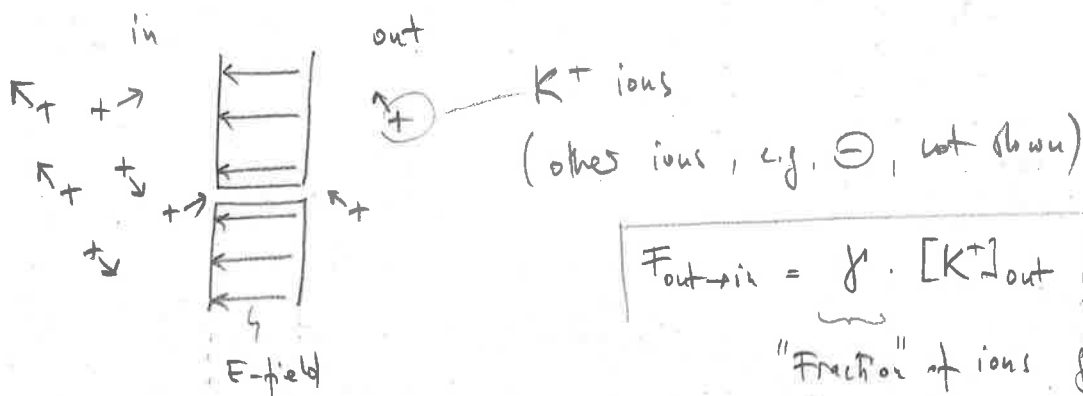 in out
K⁺ ions
(other ions, e.g. ⊖, not shown)
F_out→in = γ · [K⁺]_out
"Fraction" of ions
E-field